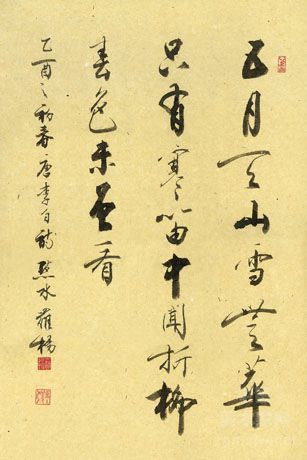 五月天山雪無華
只有寒笛中聞折柳
春色未曾看
乙酉之初春唐李白詩 水羅楊